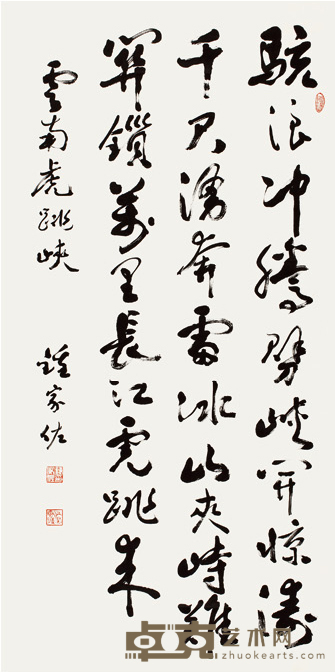 骇浪冲腾劈峡开惊涛
千尺涌奔雷冰山夹峙难
关锁万里长江虎跳来
云南虎跳峡 钟家佐
卓克艺术网
zhuokearts.com